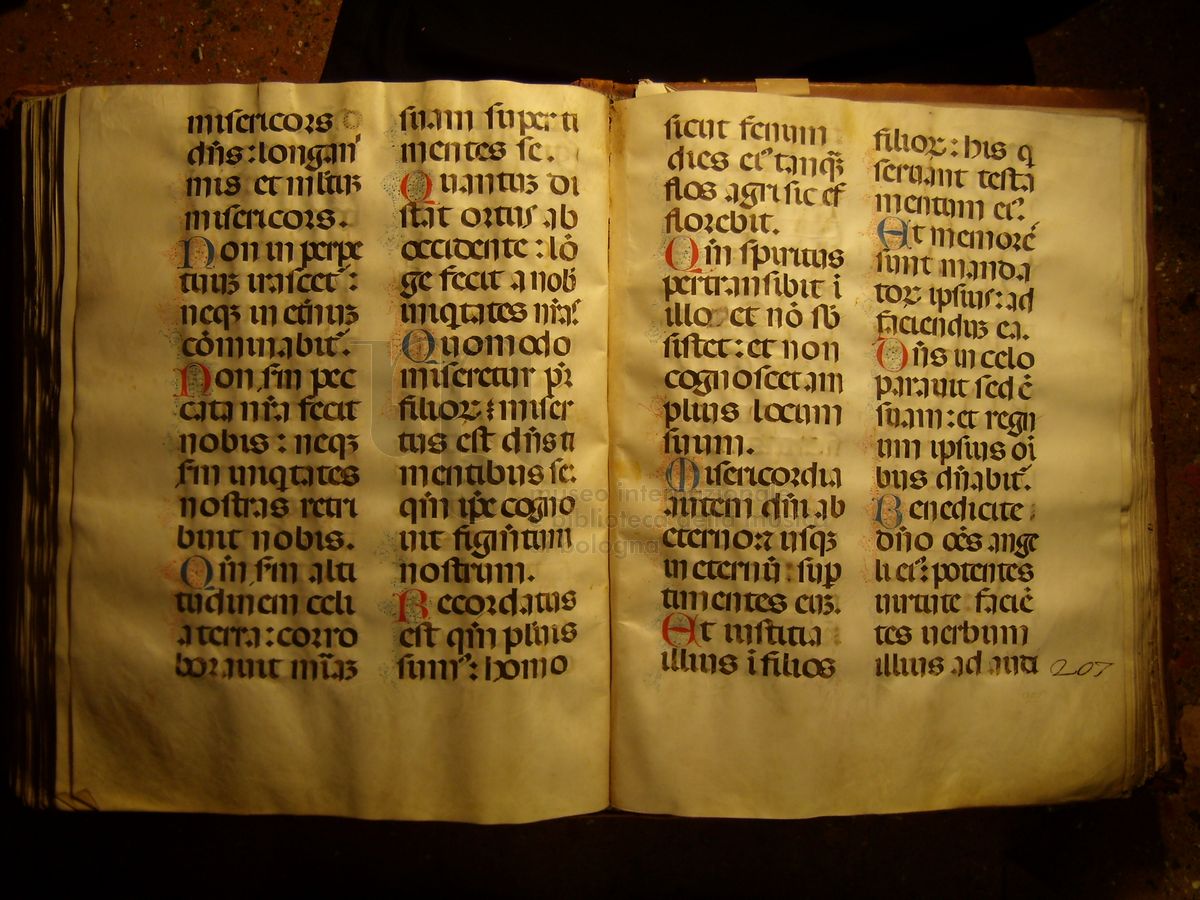 misericors
dn̄s: longani
mis et mltuȝ
misericors.
Non in perpe
tuuȝ irascet᷑:
neqȝ in et̄nuȝ
cōminabit᷑.
Non s̄m pec
cata nr̄a fecit
nobis: neqȝ
s̄m iniqtates
nostras retri
buit nobis.
Qm̄ s̄m alti
tudinem celi
a terra: corro
borauit mīaȝ
suam super ti
mentes se.
Quantuȝ di
stat ortus ab
occidente: lō
ge fecit a nob̄
iniqtates nr̄as
Quomodo
miseretur pr̄
filioꝝ: miser
tus est dn̄s ti
mentibus se:
qm̄ ip̄e cogno
uit figm̄tum
nostrum.
Recordatus
est qm̄ puluis
sumꝰ: homo
sicut fenum
dies eiꝰ tanqȝ̄
flos agri sic ef
florebit.
Qm̄ spiritus
pertransibit ī
illo et nō sb̄
sistet: et non
cognoscet am
plius locum
suum.
Misericordia
autem dn̄i ab
eterno: usqȝ
in eternū: suꝑ
timentes euȝ.
Et iustitia
illius ī filios
filioꝝ: his q
seruant testa
mentum eiꝰ:
Et memorē
sunt manda
toꝝ ipsius: ad
faciendus ea.
Dn̄s in celo
parauit sedē
suam: et regn
um ipsius oī
bus dn̄abit᷑.
Benedicite
dn̄o oēs ange
li eiꝰ: potentes
uirtute faciē
tes uerbum
illius ad audi
207
museo internazionale
biblioteca della musica
bologna